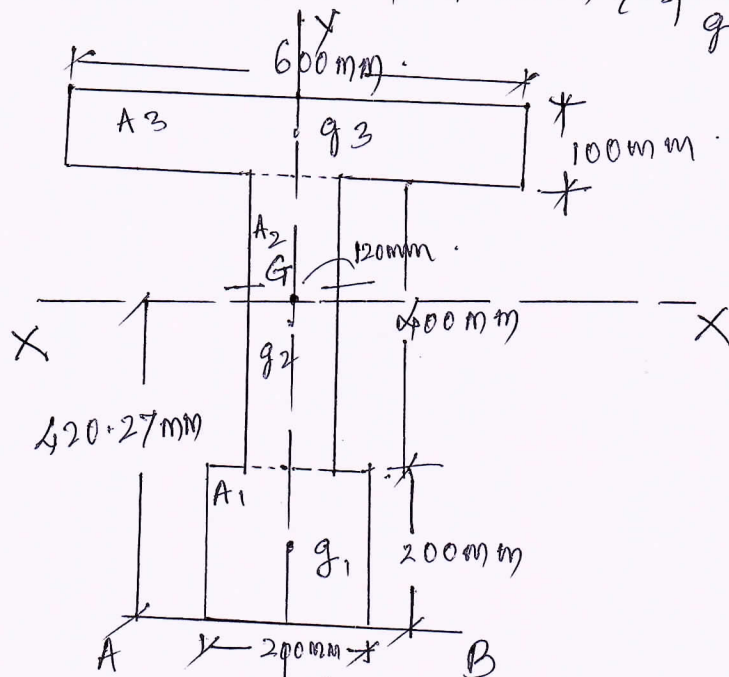 g
Y
600mm.
A3
g3
100mm.
A2
120mm.
G
X
X
400mm
g2
420.27mm
A1
g1
200mm
A
200mm
B